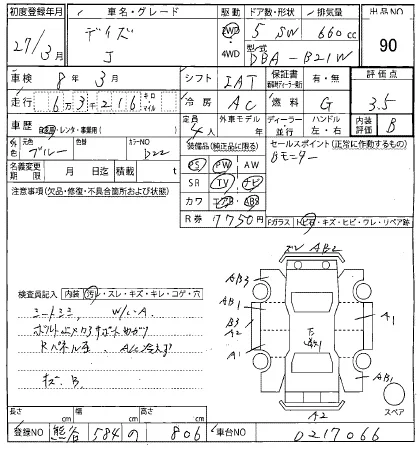 初度登録年月 車名・グレード 駆動 ドア数・形状 排気量 出品NO
27/3月 デイズ J 2WD 4WD 5 SW 660cc 90
型式 DBA-B21W
車検 8年3月 シフト IAT 保証書 有・無 評価点
走行 6万3千216 キロ・マイル 冷房 AC 燃料 G 3.5
車歴 自家用・レンタ・事業用( ) 定員 4人 外車モデル 年 ディーラー・並行 ハンドル 左・右 内装評価 B
外色 元色 ブルー 色替 カラーNO B22 装備品(純正品に限る) セールスポイント(正常に作動するもの)
名義変更期限 月 日迄 積載 t PS PW AW Bモニター
注意事項(欠品・修復・不具合箇所および状態) SR TV ナビ
カワ エアB ABS
R券 7750円 Fガラス トビ石・キズ・ヒビ・ワレ・リペア跡
検査員記入 内装 汚レ・スレ・キズ・キレ・コゲ・穴
シートシミ、W/C-A
A/C冷えず
キズ、B
AB2
AB3
AB1
B3
A2
A1
下
A1
AB1
A2
スペア
長さ cm 幅 cm 高さ cm
登録NO 熊谷 584 の 806 車台NO 0217066